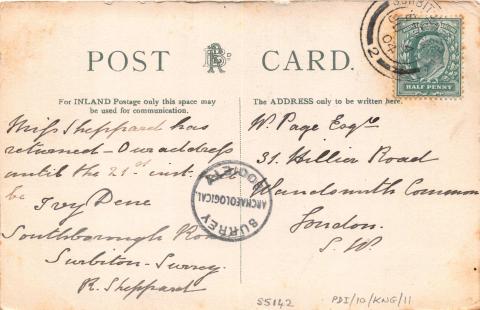 POST CARD.
For INLAND Postage only this space may
be used for communication.
The ADDRESS only to be written here.
HALF PENNY
2
Miss Sheppard has
returned – Our address
until the 21st inst.
be Ivy Dene
Southborough Road
Surbiton – Surrey.
R. Sheppard
W. Page Esqre
31. Hillier Road
Wandsworth Common
London.
S. W.
SURREY
ARCHAEOLOGICAL
SOCIETY
S5142
PDI/10/KNG/11